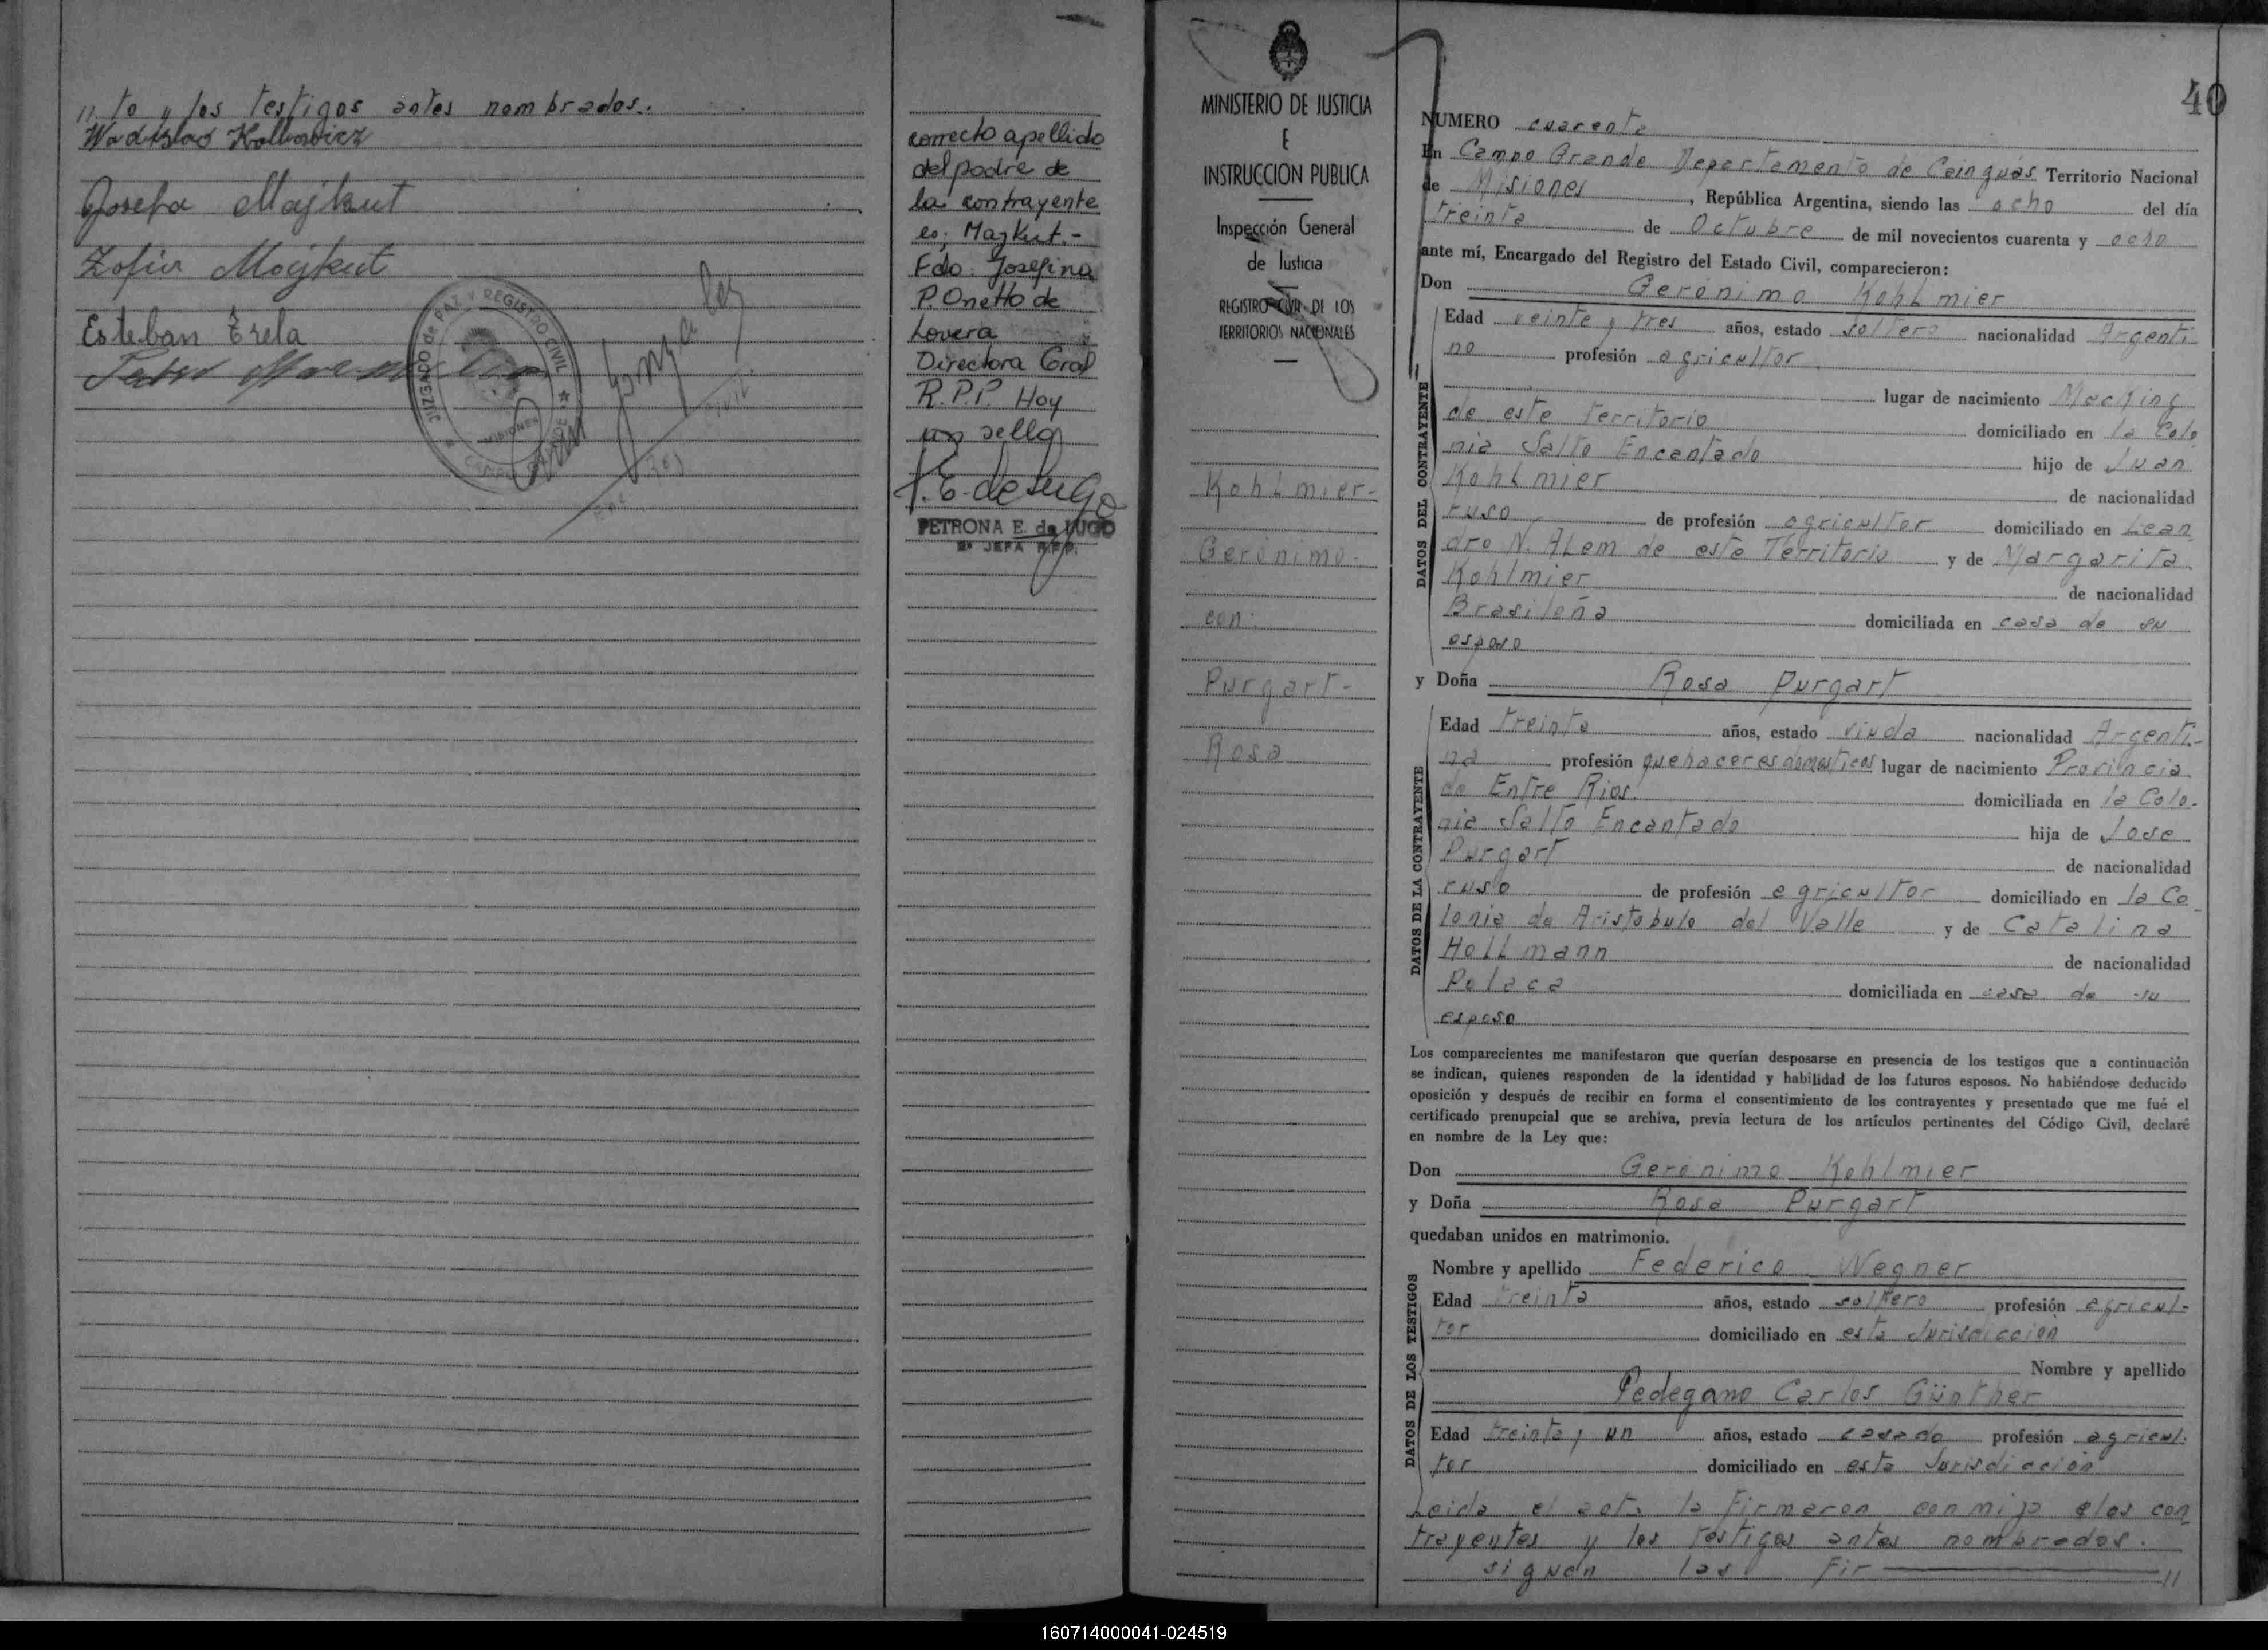 // to y los testigos antes nombrados.
Josefa Majkut
Zofia Majkut
Esteban Trela
JUZGADO de PAZ Y REGISTRO CIVIL
MISIONES
CAMPO GRANDE
correcto apellido
del padre de
la contrayente
es: Majkut.-
Fdo: Josefina
P. Onetto de
Lovera
Directora Gral
R.P.P. Hoy
un sello
P. E. de Lugo
PETRONA E. de LUGO
2ª JEFA R.P.P.
MINISTERIO DE JUSTICIA
E
INSTRUCCION PUBLICA
Inspección General
de Justicia
REGISTRO CIVIL DE LOS
TERRITORIOS NACIONALES
Kohlmier-
Gerónimo-
con:
Purgart-
Rosa
40
NUMERO cuarenta
En Campo Grande Departamento de Cainguás Territorio Nacional
de Misiones, República Argentina, siendo las ocho del día
treinta de Octubre de mil novecientos cuarenta y ocho
ante mí, Encargado del Registro del Estado Civil, comparecieron:
Don Gerónimo Kohlmier
DATOS DEL CONTRAYENTE
Edad veinte y tres años, estado soltero nacionalidad Argenti-
no profesión agricultor
lugar de nacimiento Macking
de este territorio domiciliado en la Colo-
nia Salto Encantado hijo de Juan
Kohlmier de nacionalidad
ruso de profesión agricultor domiciliado en Lean-
dro N. Alem de este Territorio y de Margarita
Kohlmier de nacionalidad
Brasileña domiciliada en casa de su
esposo
y Doña Rosa Purgart
DATOS DE LA CONTRAYENTE
Edad treinta años, estado viuda nacionalidad Argenti-
na profesión quehaceres domesticos lugar de nacimiento Provincia
de Entre Rios. domiciliada en la Colo-
nia Salto Encantado hija de Jose
Purgart de nacionalidad
ruso de profesión agricultor domiciliado en la Co-
lonia de Aristobulo del Valle y de Catalina
Hollmann de nacionalidad
Polaca domiciliada en casa de su
esposo
Los comparecientes me manifestaron que querían desposarse en presencia de los testigos que a continuación
se indican, quienes responden de la identidad y habilidad de los futuros esposos. No habiéndose deducido
oposición y después de recibir en forma el consentimiento de los contrayentes y presentado que me fué el
certificado prenupcial que se archiva, previa lectura de los artículos pertinentes del Código Civil, declaré
en nombre de la Ley que:
Don Gerónimo Kohlmier
y Doña Rosa Purgart
quedaban unidos en matrimonio.
DATOS DE LOS TESTIGOS
Nombre y apellido Federico Wegner
Edad treinta años, estado soltero profesión agricul-
tor domiciliado en esta Jurisdiccion
Nombre y apellido
Pedegano Carlos Günther
Edad treinta y un años, estado casado profesión agricul-
tor domiciliado en esta Jurisdiccion
Leida el acta la firmaron conmigo elos con-
trayentes y los testigos antes nombrados.
siguen las fir //
160714000041-024519